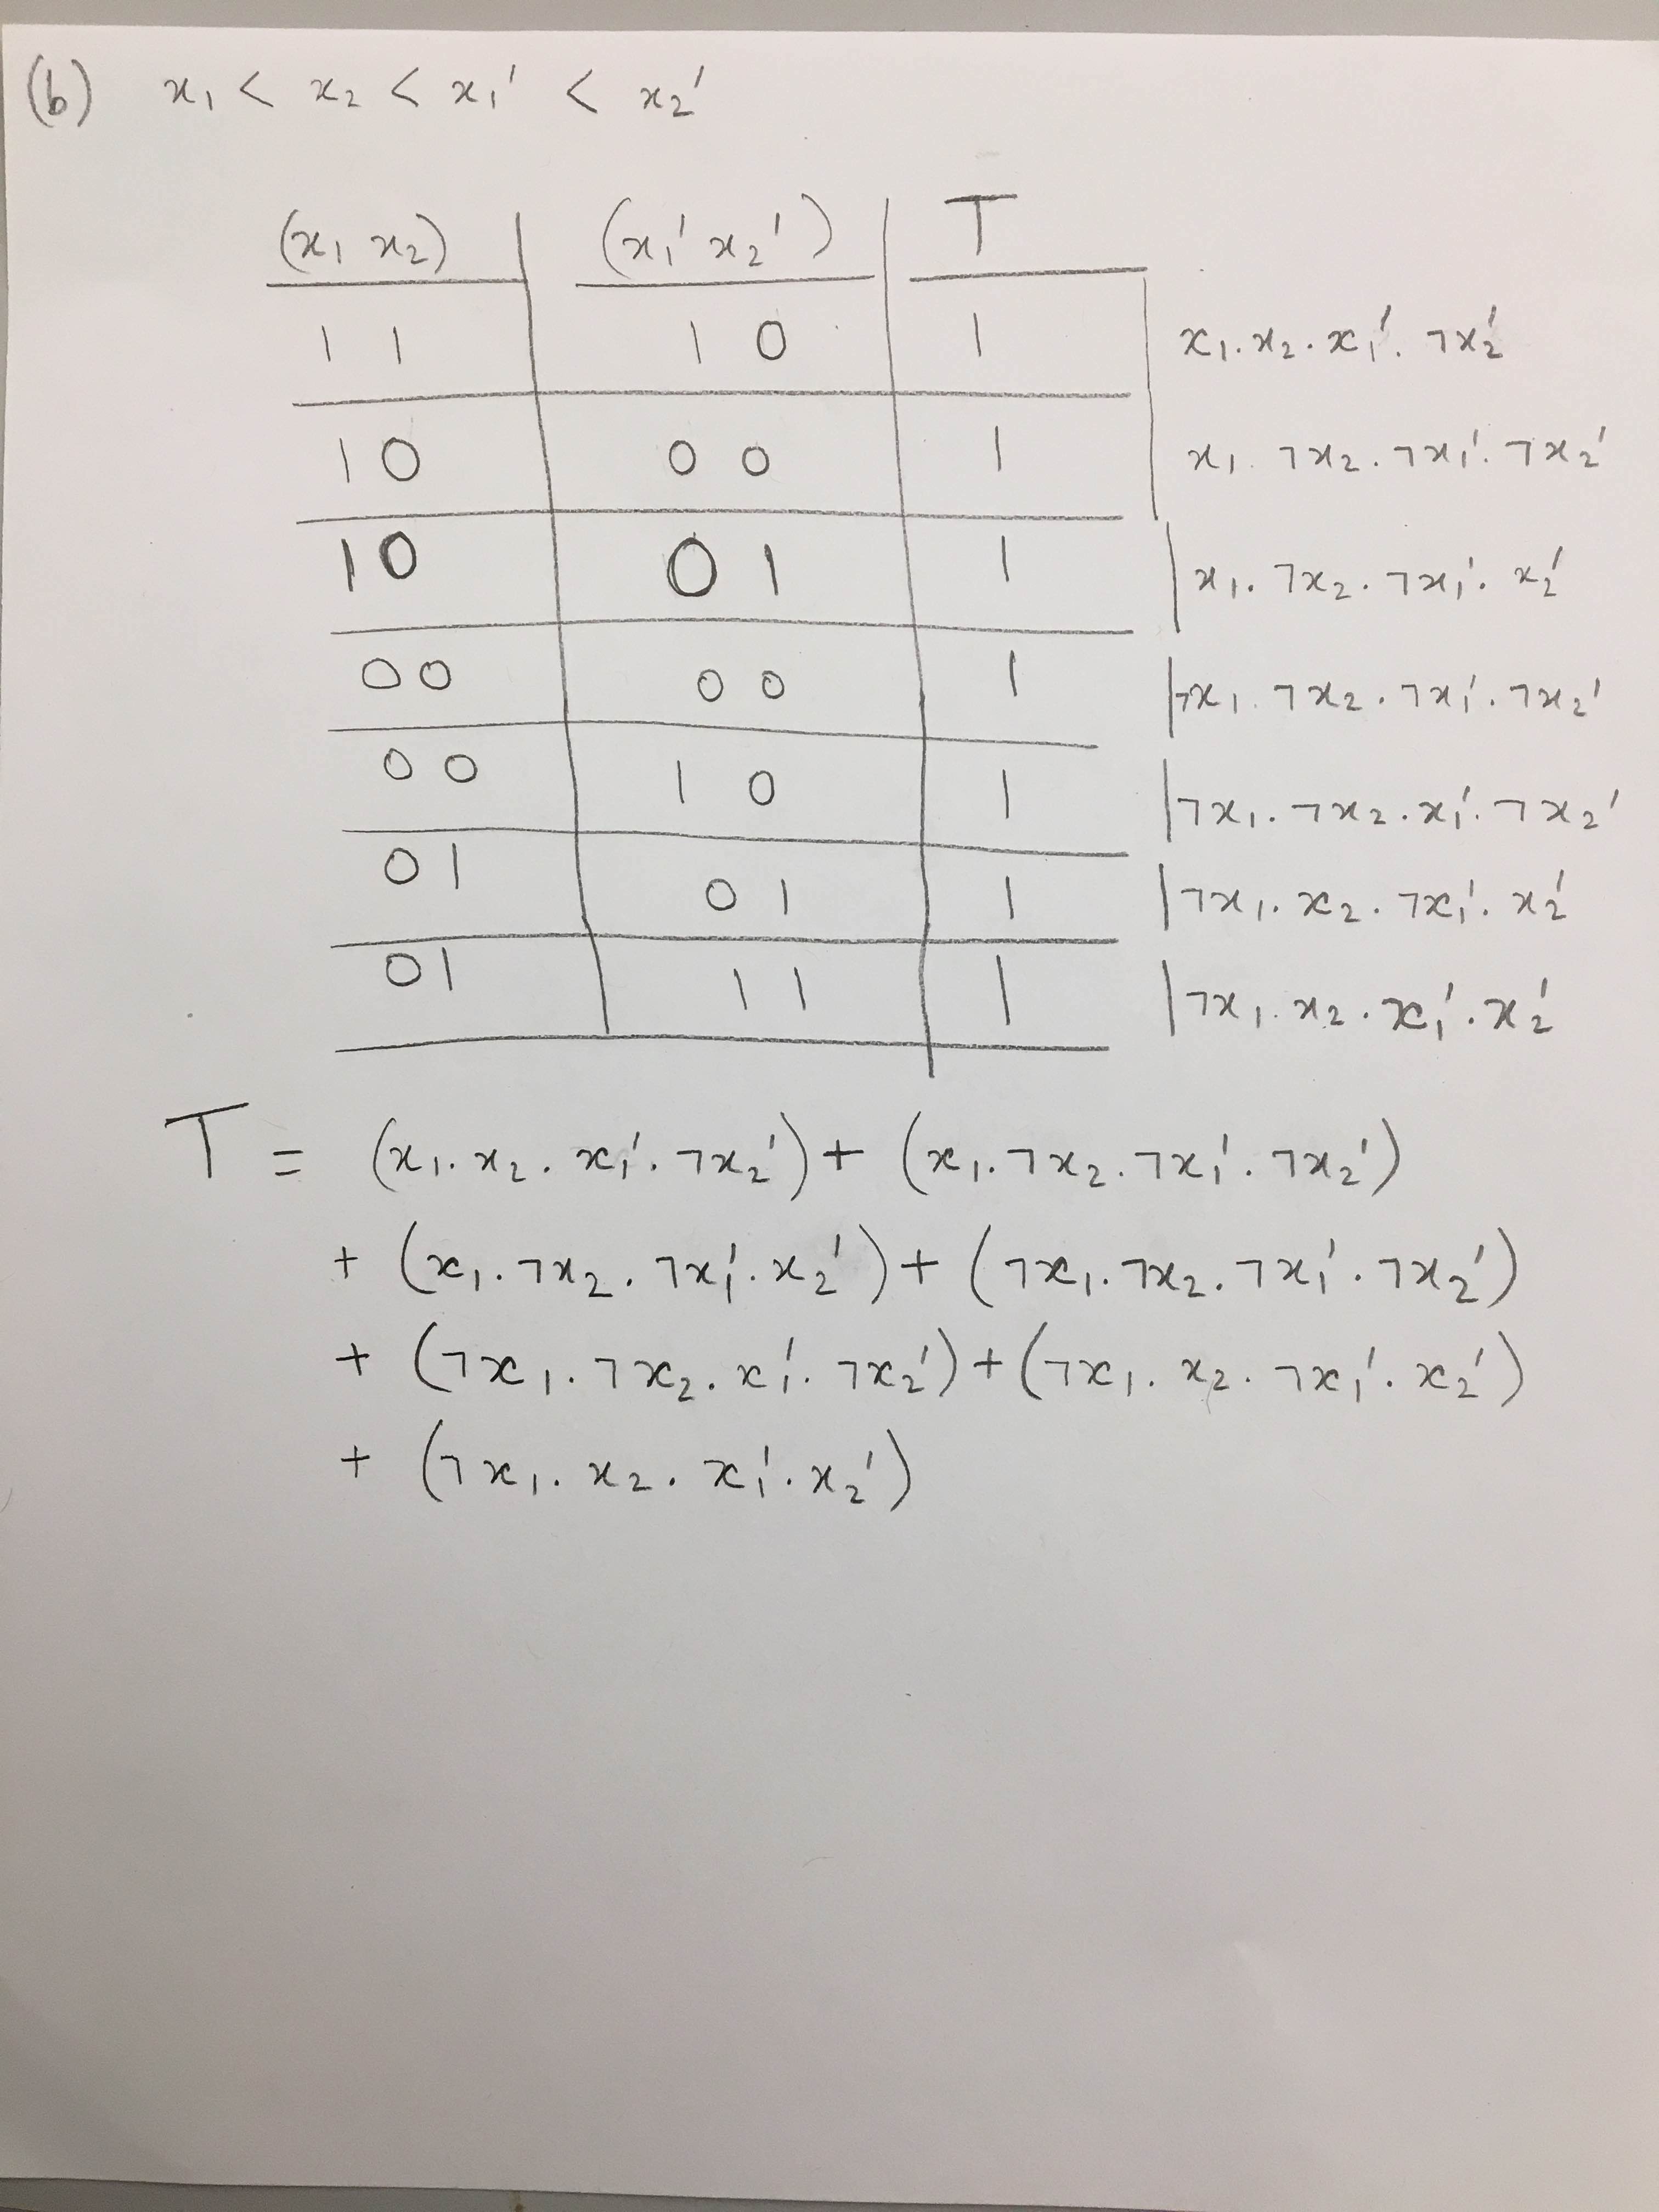 (b) x₁ < x₂ < x₁' < x₂'
(x₁ x₂) (x₁' x₂') T
1 1 1 0 1 x₁.x₂.x₁'.¬x₂'
1 0 0 0 1 x₁.¬x₂.¬x₁'.¬x₂'
1 0 0 1 1 x₁.¬x₂.¬x₁'.x₂'
0 0 0 0 1 ¬x₁.¬x₂.¬x₁'.¬x₂'
0 0 1 0 1 ¬x₁.¬x₂.x₁'.¬x₂'
0 1 0 1 1 ¬x₁.x₂.¬x₁'.x₂'
0 1 1 1 1 ¬x₁.x₂.x₁'.x₂'
T = (x₁.x₂.x₁'.¬x₂') + (x₁.¬x₂.¬x₁'.¬x₂')
+ (x₁.¬x₂.¬x₁'.x₂') + (¬x₁.¬x₂.¬x₁'.¬x₂')
+ (¬x₁.¬x₂.x₁'.¬x₂') + (¬x₁.x₂.¬x₁'.x₂')
+ (¬x₁.x₂.x₁'.x₂')